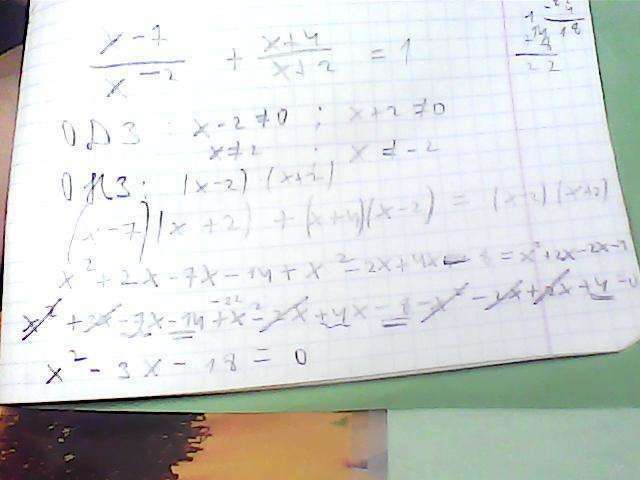 x-7/x-2 + x+4/x+2 = 1
ОДЗ: x-2≠0 ; x+2≠0
x≠2 ; x≠-2
ОНЗ: (x-2)(x+2)
(x-7)(x+2) + (x+4)(x-2) = (x-2)(x+2)
x²+2x-7x-14+x²-2x+4x-8=x²+2x-2x-
x²+2x-7x-14+x²-2x+4x-8-x²-2x+2x+4=0
x²-3x-18=0